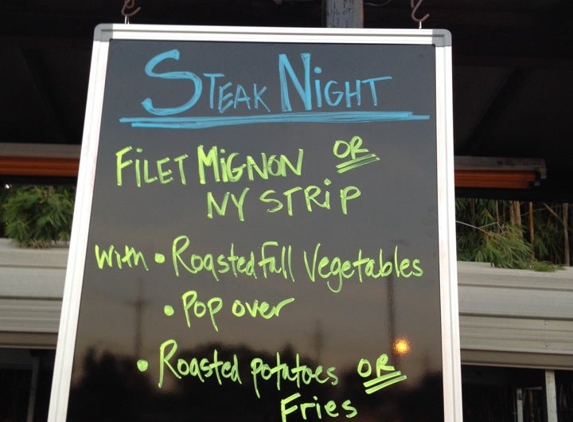 STEAK NIGHT
FILET MIGNON OR
NY STRIP
with • Roasted fall Vegetables
• Pop over
• Roasted potatoes OR
Fries